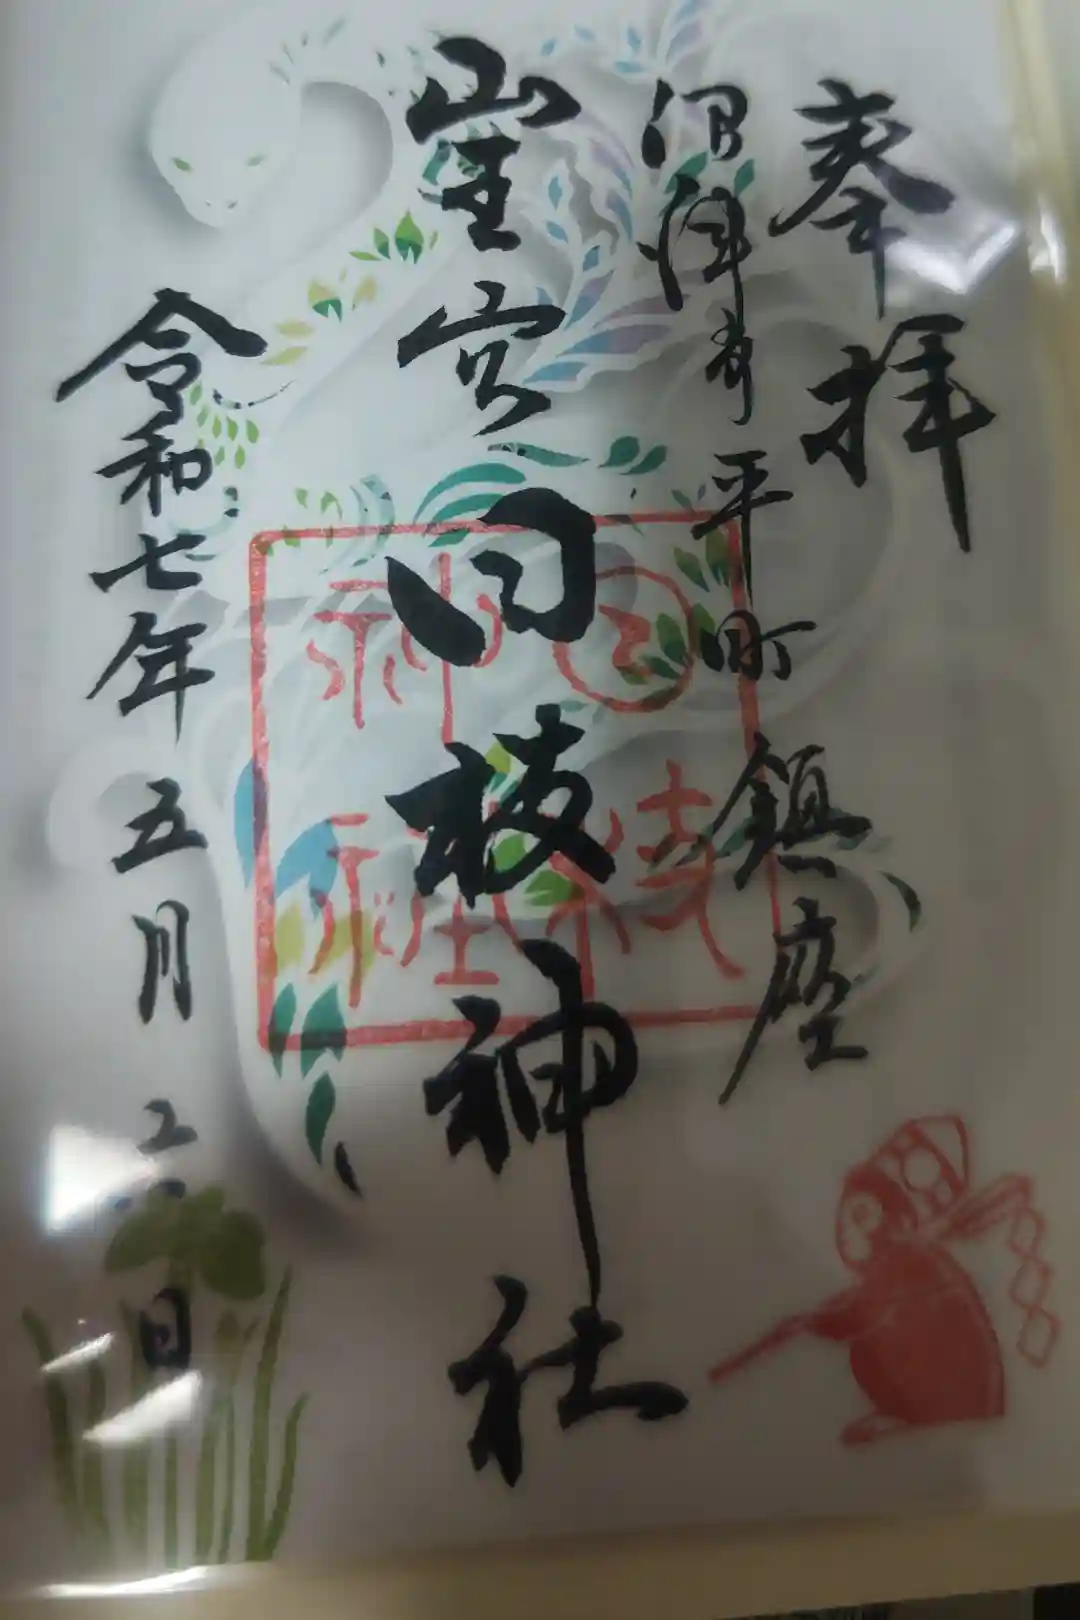 奉拝
沼津市平町鎮座
山王宮日枝神社
日枝神社
令和七年五月 日